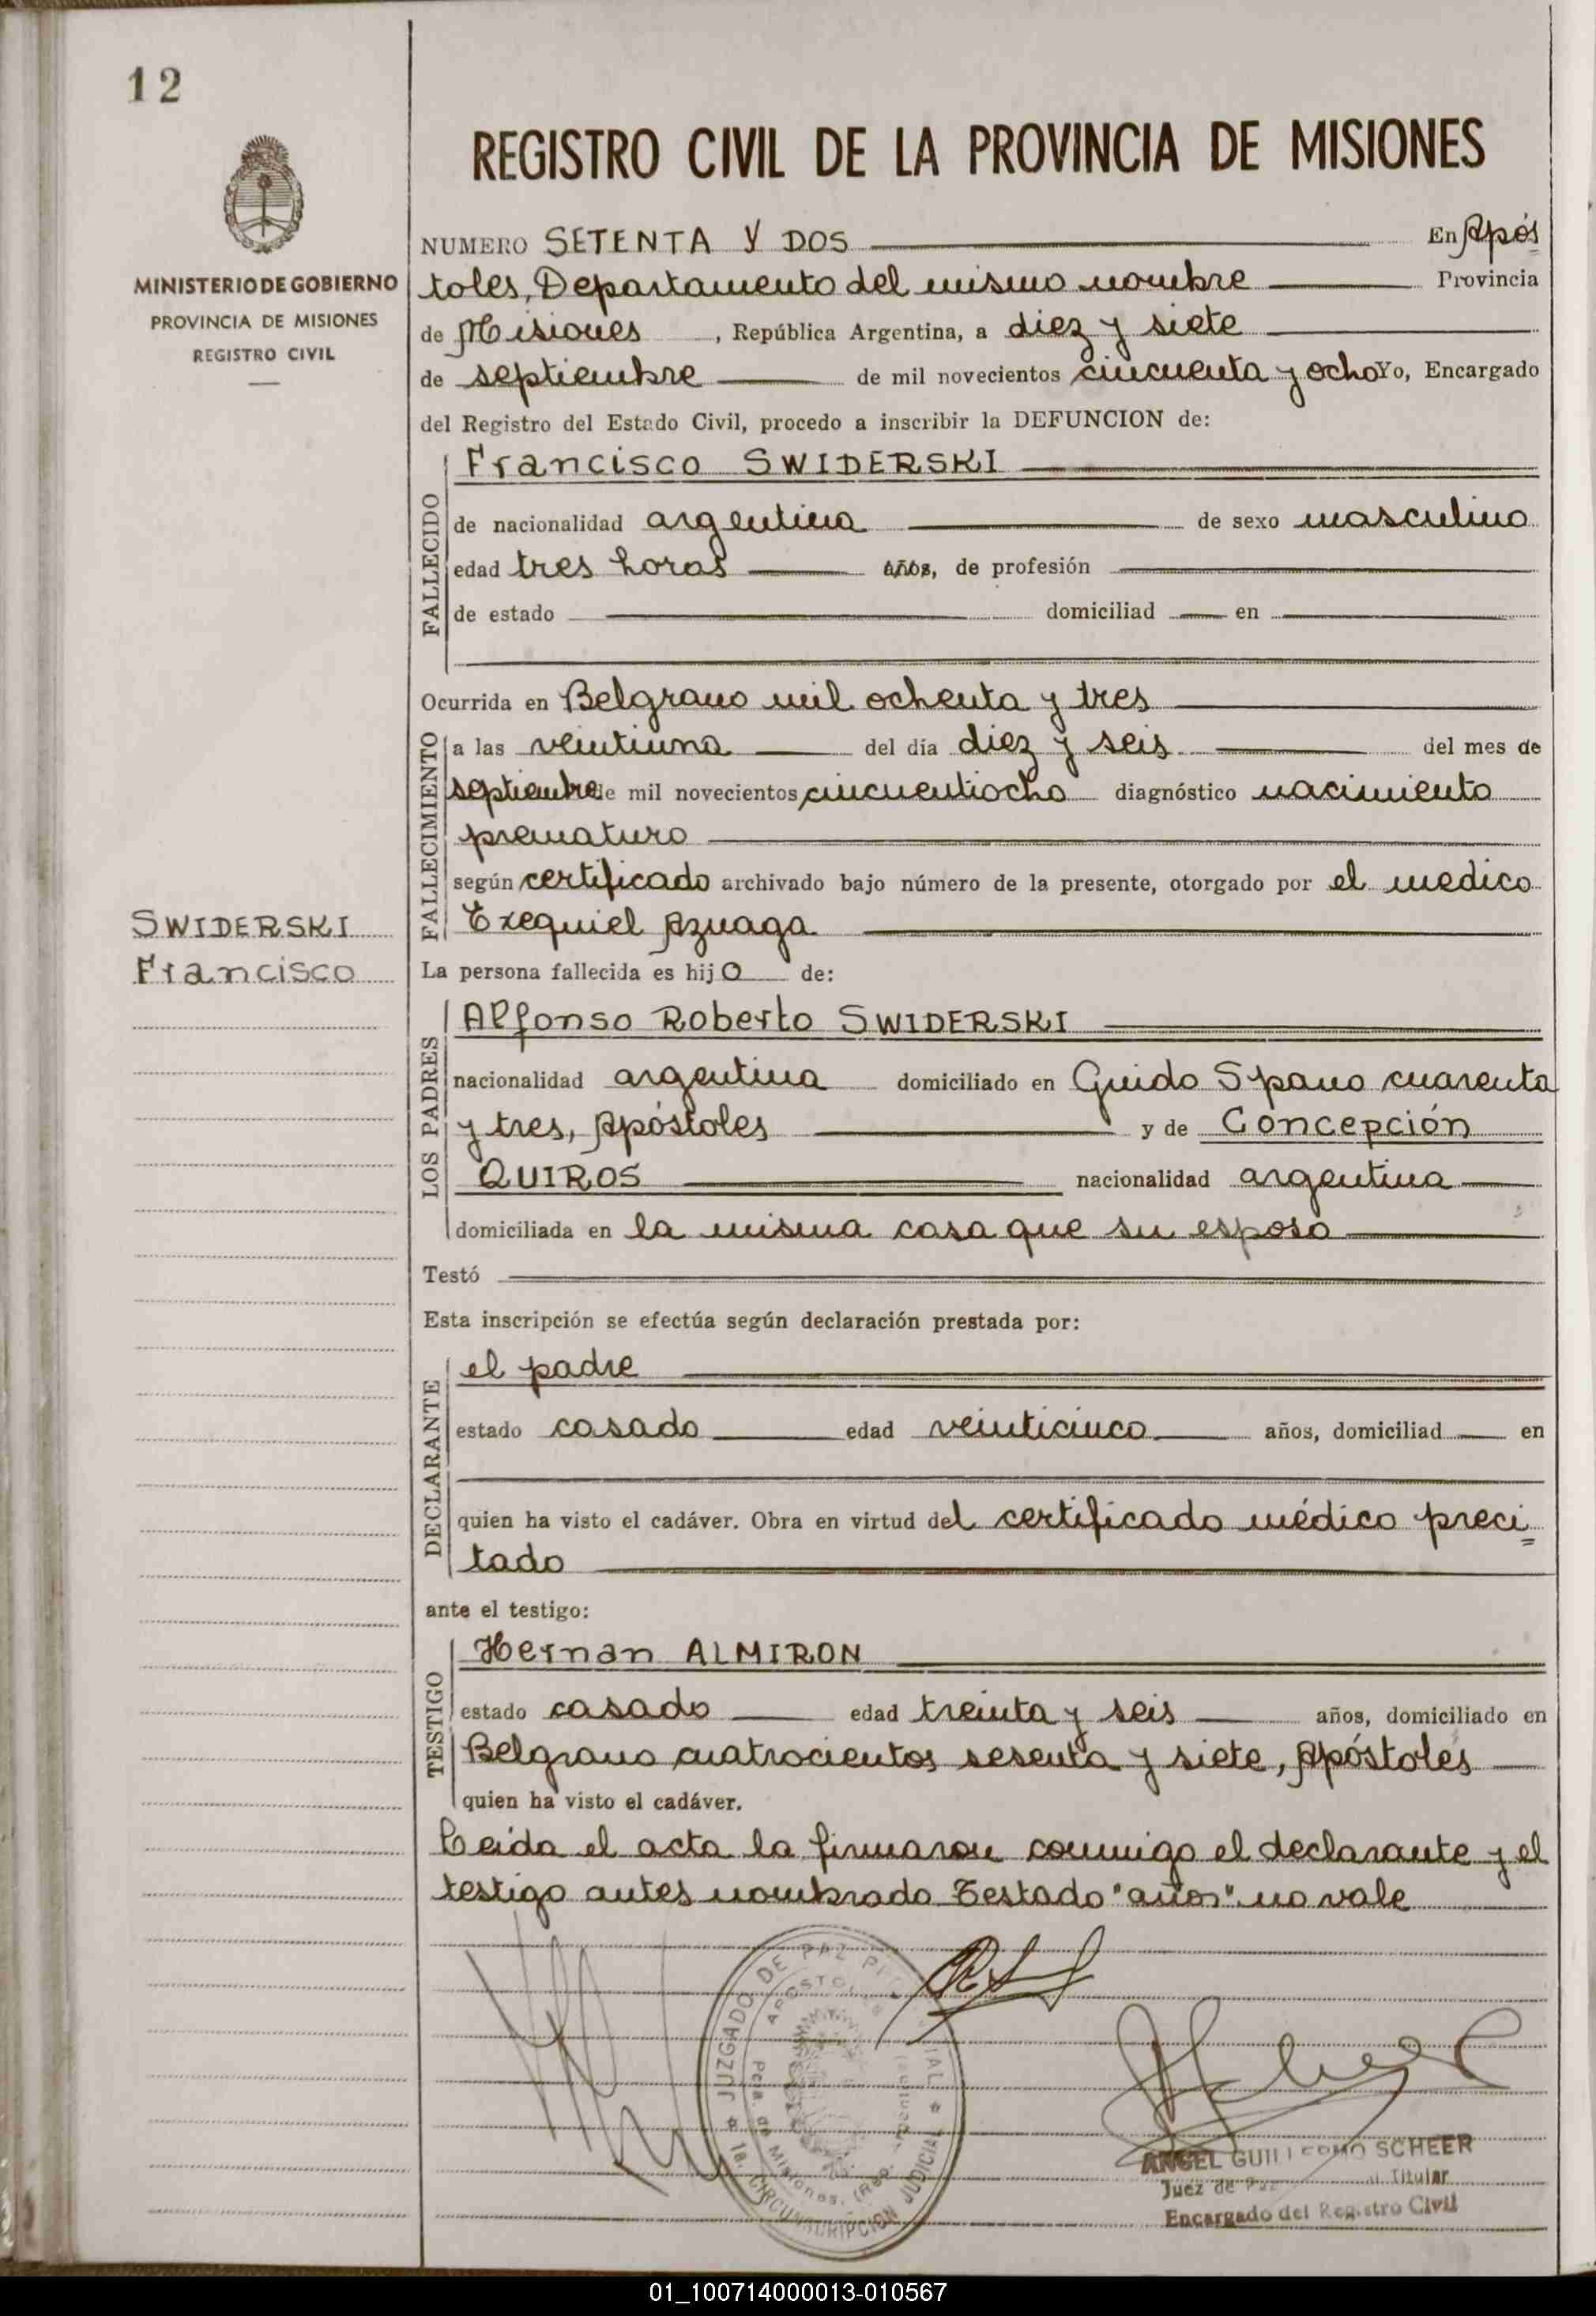 12
MINISTERIO DE GOBIERNO
PROVINCIA DE MISIONES
REGISTRO CIVIL
SWIDERSKI
Francisco
REGISTRO CIVIL DE LA PROVINCIA DE MISIONES
NUMERO SETENTA Y DOS En Após
toles, Departamento del mismo nombre Provincia
de Misiones, República Argentina, a diez y siete
de septiembre de mil novecientos cincuenta y ocho Yo, Encargado
del Registro del Estado Civil, procedo a inscribir la DEFUNCION de:
FALLECIDO
Francisco SWIDERSKI
de nacionalidad argentina de sexo masculino
edad tres horas años, de profesión
de estado domiciliad en
Ocurrida en Belgrano mil ochenta y tres
FALLECIMIENTO
a las veintiuna del día diez y seis del mes de
septiembre de mil novecientos cincuentiocho diagnóstico nacimiento
prematuro
según certificado archivado bajo número de la presente, otorgado por el medico
Exequiel Azuaga
La persona fallecida es hijo de:
LOS PADRES
Alfonso Roberto SWIDERSKI
nacionalidad argentina domiciliado en Guido Spano cuarenta
y tres, Apóstoles y de Concepción
QUIROS nacionalidad argentina
domiciliada en la misma casa que su esposo
Testó
Esta inscripción se efectúa según declaración prestada por:
DECLARANTE
el padre
estado casado edad veinticinco años, domiciliad en
quien ha visto el cadáver. Obra en virtud del certificado médico preci=
tado
ante el testigo:
TESTIGO
Hernan ALMIRON
estado casado edad treinta y seis años, domiciliado en
Belgrano cuatrocientos sesenta y siete, Apóstoles
quien ha visto el cadáver.
Leida el acta la firmaron conmigo el declarante y el
testigo antes nombrado Testado "años" no vale
JUZGADO DE PAZ
APOSTOLES
Pcia. de Misiones. (Rep. Argentina)
1a. CIRCUNSCRIPCION JUDICIAL
ANGEL GUILLERMO SCHEER
Juez de Paz Titular
Encargado del Registro Civil
01_100714000013-010567